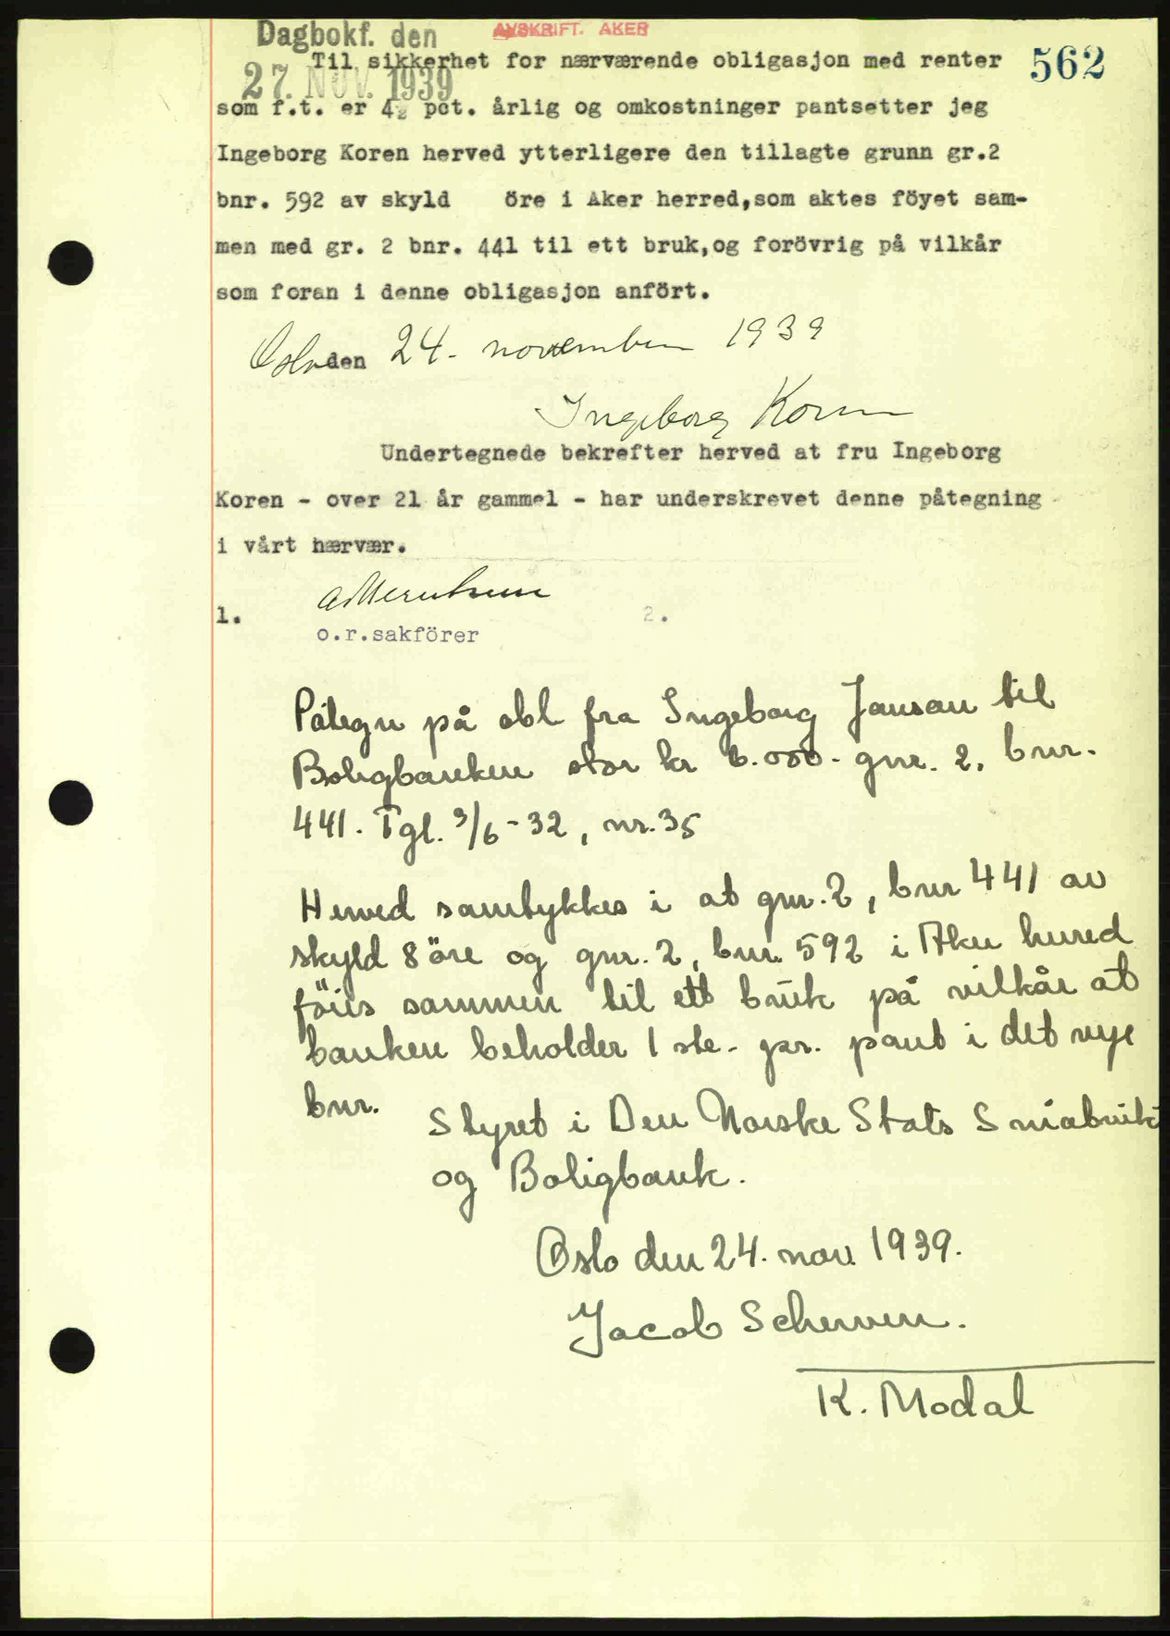 Dagbokf. den
27. NOV. 1939
AVSKRIFT. AKER
562
Til sikkerhet for nærværende obligasjon med renter
som f.t. er 4½ pct. årlig og omkostninger pantsetter jeg
Ingeborg Koren herved ytterligere den tillagte grunn gr.2
bnr. 592 av skyld öre i Aker herred,som aktes föyet sam-
men med gr. 2 bnr. 441 til ett bruk,og forövrig på vilkår
som foran i denne obligasjon anfört.
Oslo den 24. november 1939
Ingeborg Koren
Undertegnede bekrefter herved at fru Ingeborg
Koren - over 21 år gammel - har underskrevet denne påtegning
i vårt nærvær.
1. 2.
o.r.sakförer
Påtegn på obl fra Ingeborg Jansen til
Boligbanken stor kr 6.000.- gnr. 2, bnr.
441. Tgl. 3/6-32, nr. 35
Herved samtykkes i at gnr. 2, bnr 441 av
skyld 8 öre og gnr. 2, bnr. 592 i Aker herred
föies sammen til ett bruk på vilkår at
banken beholder 1 ste. pr. pant i det nye
bnr.
Styret i Den Norske Stats Småbruk
og Boligbank.
Oslo den 24. nov. 1939.
Jacob Scherven.
K. Modal